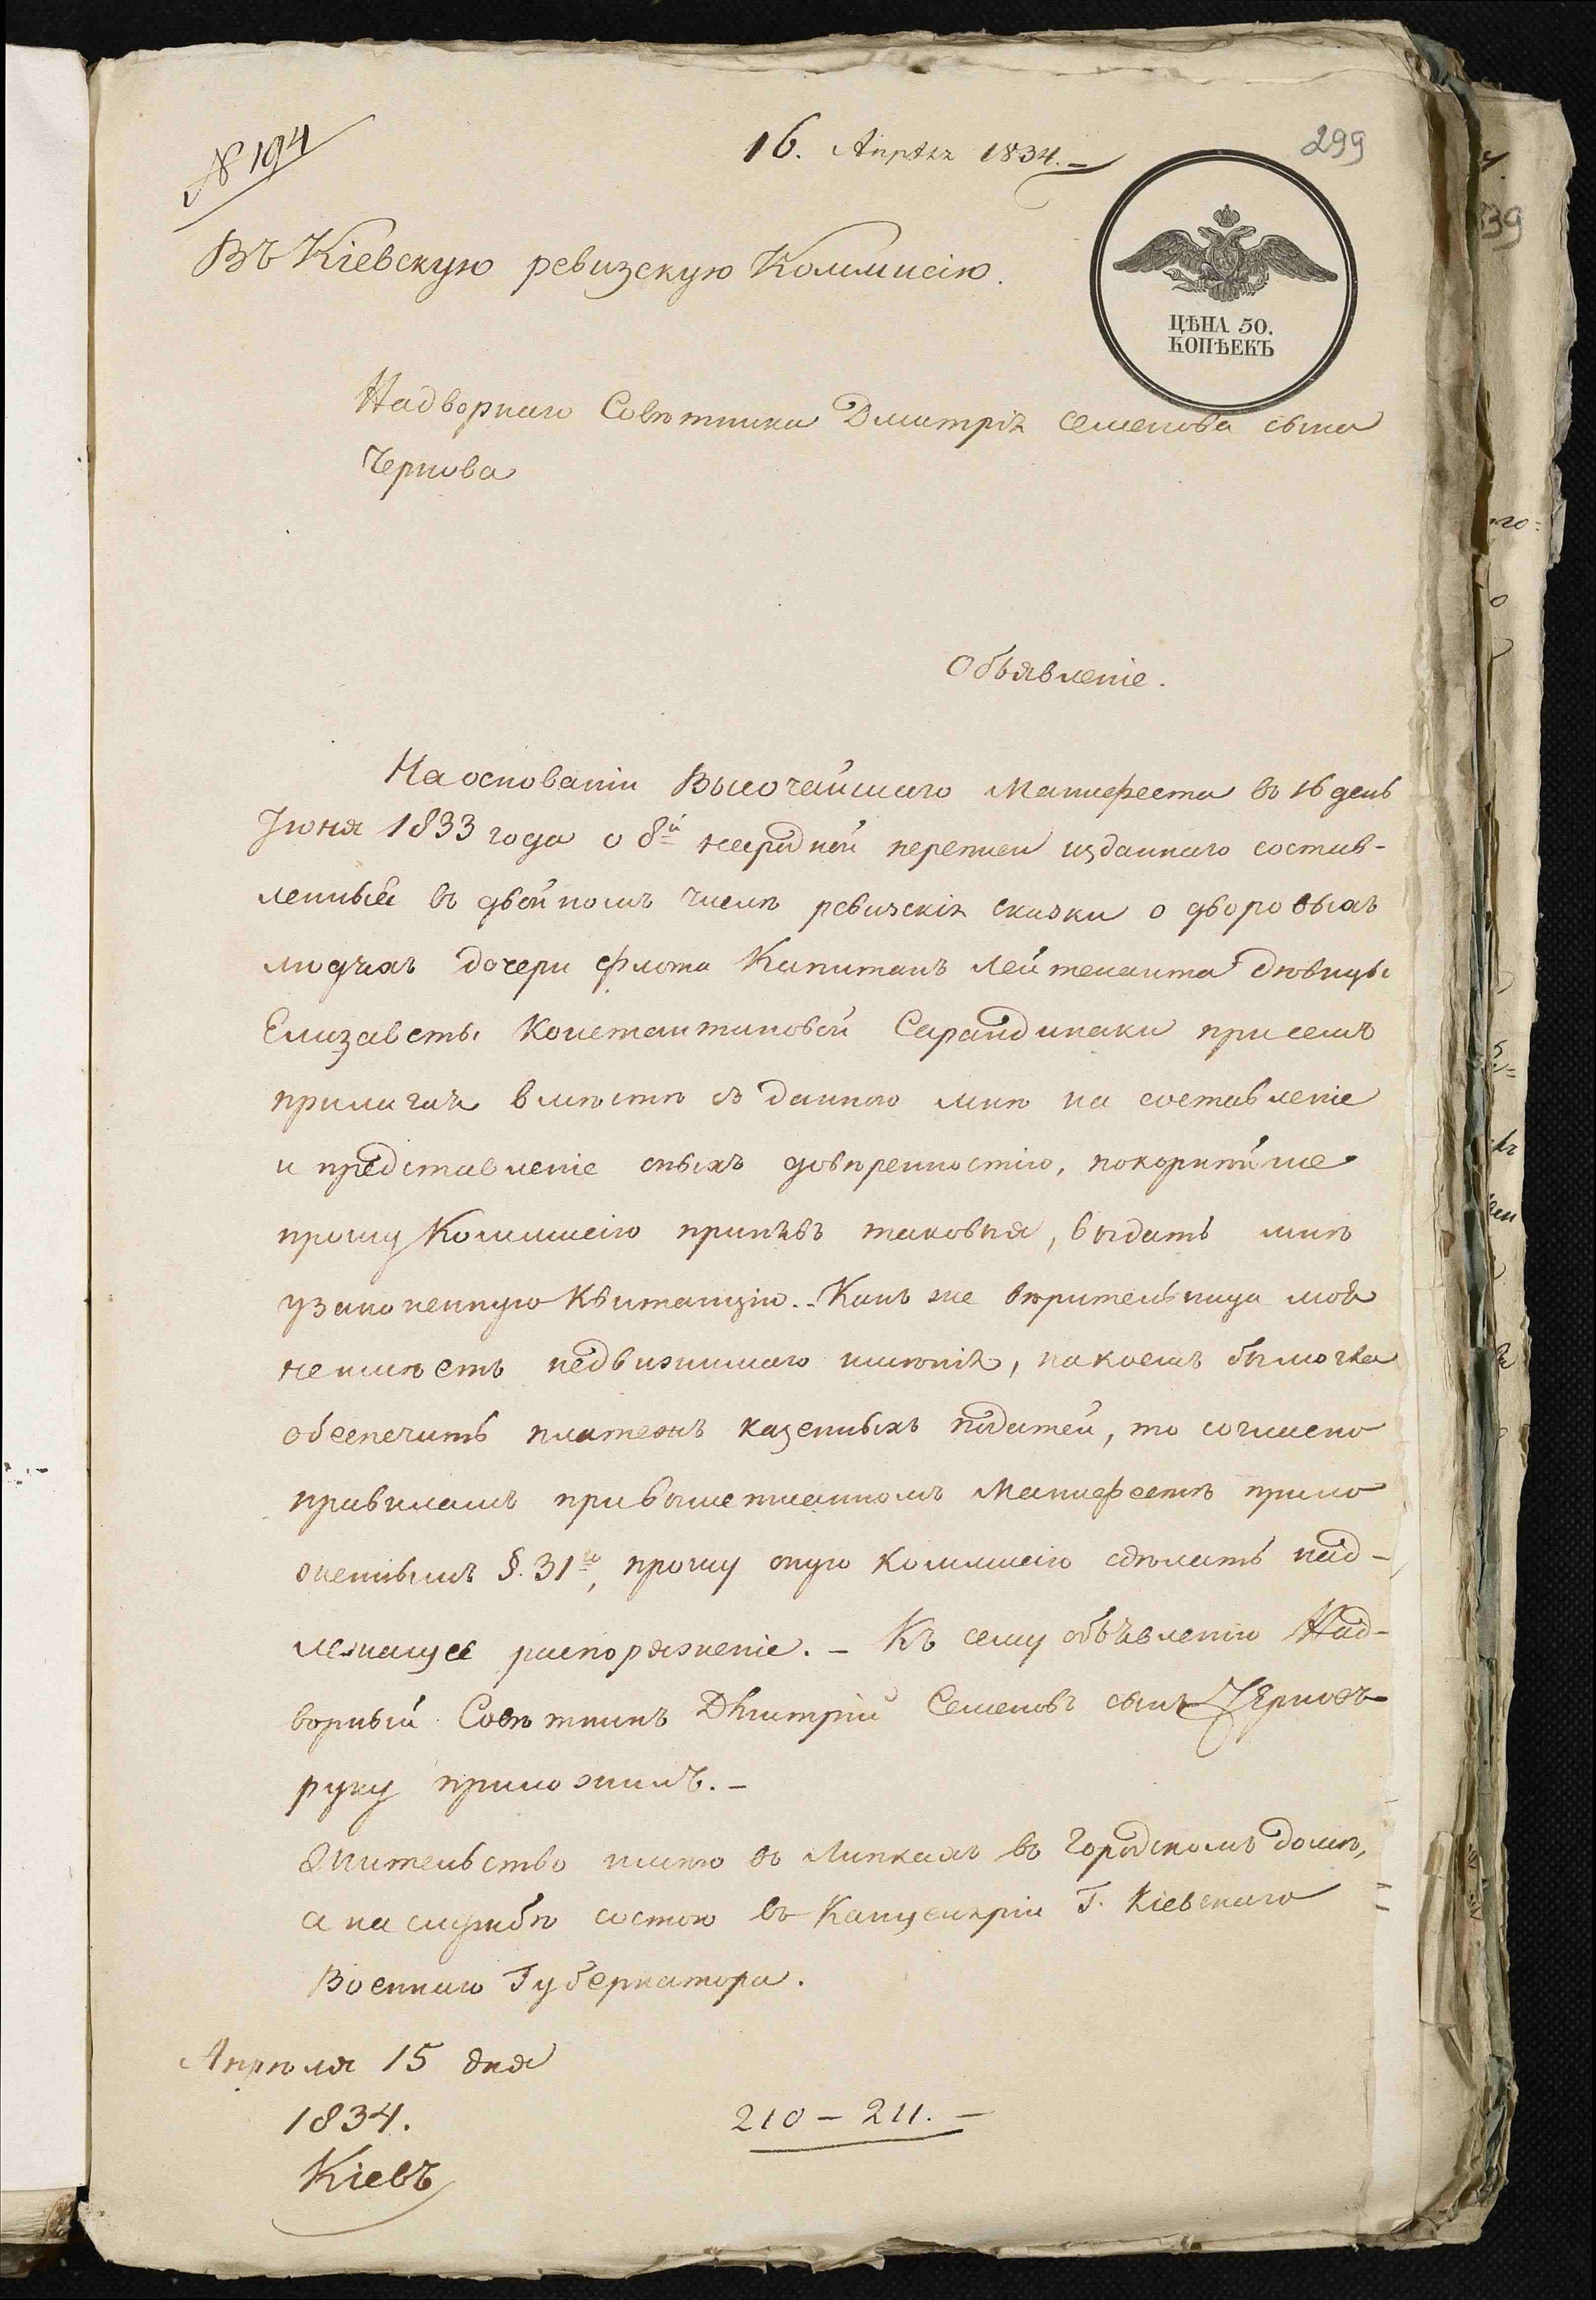 № 194
16. Апрѣля 1834.–
299
Въ Кіевскую ревизскую Коммисію.
ЦѢНА 50.
КОПѢЕКЪ
Надворнаго Совѣтника Дмитрія Семенова сына
Чернова
Объявленіе.
На основаніи Высочайшаго Манифеста въ 16 день
Іюня 1833 года о 8й народной переписи изданнаго состав-
ленныя въ двойномъ числѣ ревизскія сказки о дворовыхъ
людяхъ дочери флота Капитанъ Лейтенанта Дѣвицы
Елизаветы Константиновой Сарандинаки при семъ
прилагая вмѣстѣ съ данною мнѣ на составленіе
и представленіе оныхъ довѣренностію, покорнѣйше
прошу Коммисію принявъ таковыя, выдать мнѣ
узаконенную Квитанцію.- Какъ же вѣрительница моя
неимѣетъ недвижимаго имѣнія, накоемъ бы могла
обеспечить платежъ казенныхъ податей, то согласно
правиламъ привышеписанномъ Манифестѣ прило
женнымъ §. 31й, прошу оную Коммисію сдѣлать над-
лежащее распоряженіе. – Къ сему объявленію Над-
ворный Совѣтникъ Дмитрій Семеновъ сынъ Черновъ
руку приложилъ.–
Жительство имѣю въ Липкахъ въ Городскомъ домѣ,
а на службѣ состою въ Канцеляріи Г. Кіевскаго
Военнаго Губернатора.
Апрѣля 15 дня
1834.
210 – 211. –
Кіевъ